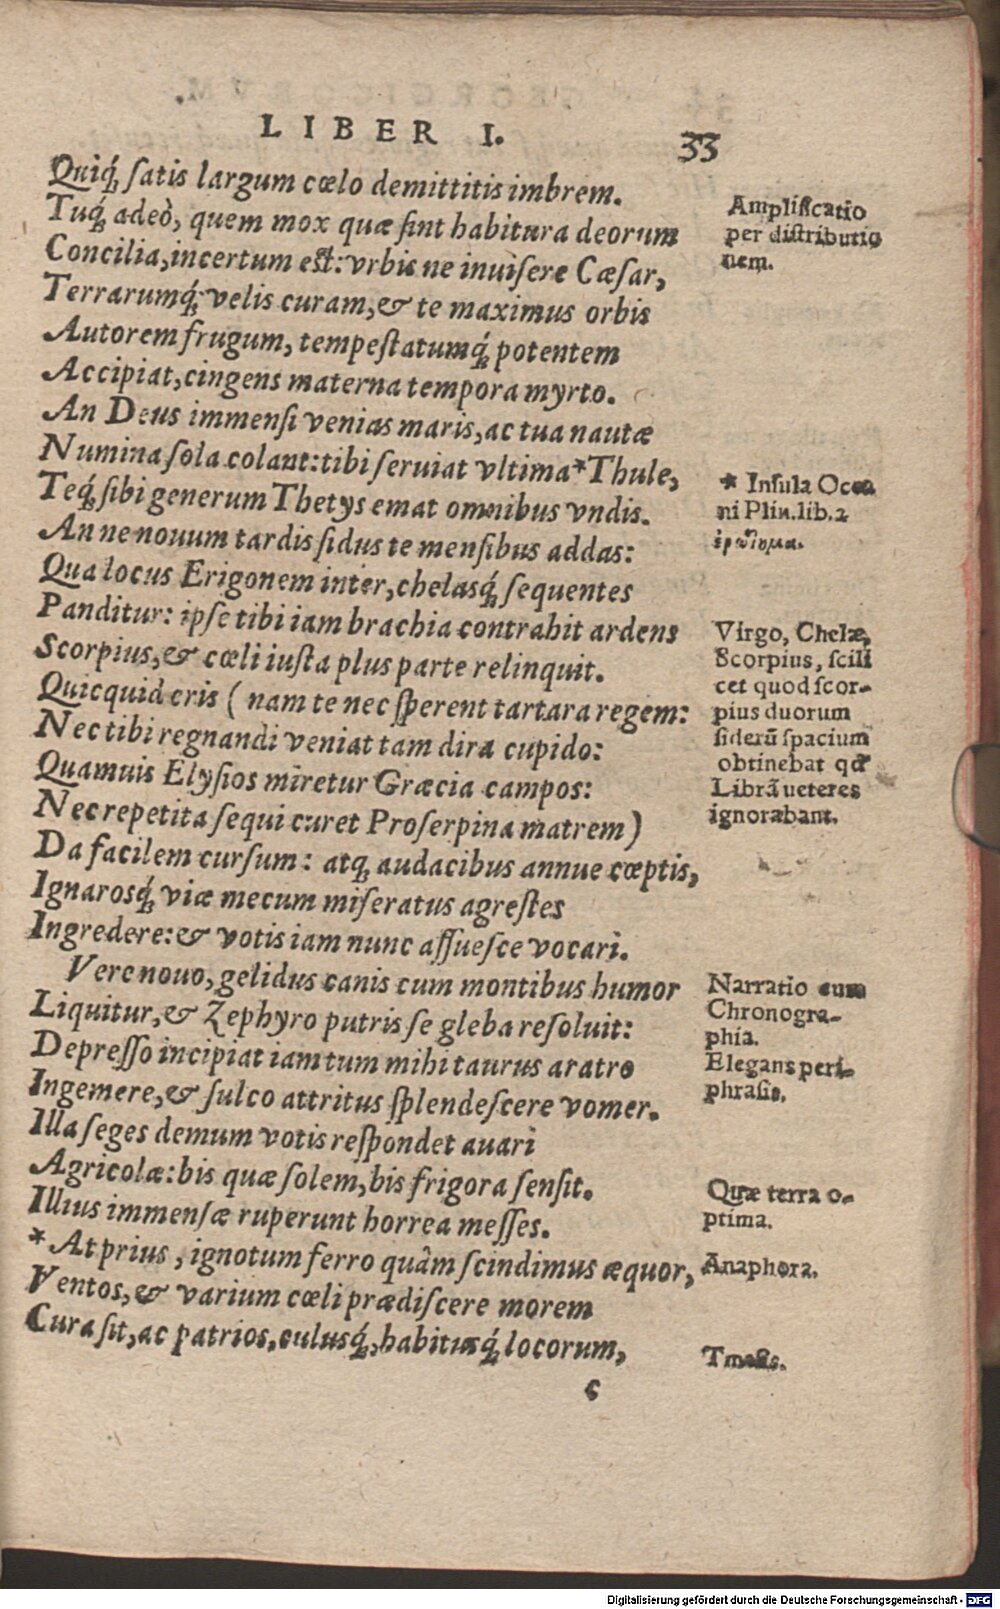 LIBER I. 33
Quiq́; ſatis largum cœlo demittitis imbrem.
Tuq́; adeò, quem mox quæ ſint habitura deorum
Concilia, incertum eſt: vrbis ne inuiſere Cæſar,
Terrarumq́; velis curam, & te maximus orbis
Autorem frugum, tempeſtatumq́; potentem
Accipiat, cingens materna tempora myrto.
An Deus immenſi venias maris, ac tua nautæ
Numina ſola colant: tibi ſeruiat vltima*Thule,
Teq́; ſibi generum Thetys emat omnibus vndis.
An ne nouum tardis ſidus te menſibus addas:
Qua locus Erigonem inter, chelasq́; ſequentes
Panditur: ipſe tibi iam brachia contrahit ardens
Scorpius, & cœli iuſta plus parte relinquit.
Quicquid eris ( nam te nec ſperent tartara regem:
Nec tibi regnandi veniat tam dira cupido:
Quamuis Elyſios miretur Græcia campos:
Nec repetita ſequi curet Proſerpina matrem)
Da facilem curſum: atq; audacibus annue cœptis,
Ignarosq́; viæ mecum miſeratus agreſtes
Ingredere: & votis iam nunc aſſueſce vocari.
Vere nouo, gelidus canis cum montibus humor
Liquitur, & Zephyro putris ſe gleba reſoluit:
Depreſſo incipiat iam tum mihi taurus aratro
Ingemere, & ſulco attritus ſplendeſcere vomer.
Illa ſeges demum votis reſpondet auari
Agricolæ: bis quæ ſolem, bis frigora ſenſit.
Illius immenſæ ruperunt horrea meſſes.
*At prius, ignotum ferro quàm ſcindimus æquor,
Ventos, & varium cœli prædiſcere morem
Cura ſit, ac patrios, cultusq́;, habitusq́; locorum,
c
Amplificatio
per diſtributio
nem.
* Inſula Ocea
ni Plin. lib. 2
ἐρώτημα.
Virgo, Chelæ,
Scorpius, ſcili
cet quod ſcor-
pius duorum
ſiderū ſpacium
obtinebat qd́
Librā ueteres
ignorabant.
Narratio cum
Chronogra-
phia.
Elegans peri-
phraſis.
Quæ terra o-
ptima.
Anaphora.
Tmeſis.
Digitalisierung gefördert durch die Deutsche Forschungsgemeinschaft - DFG